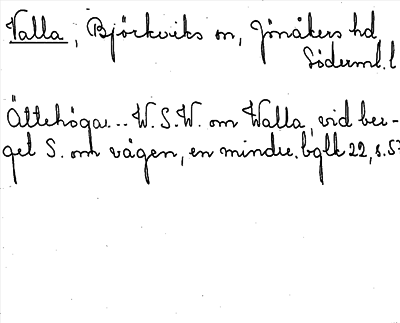 Valla, Björkviks sn, Jönåkers hd,
Söderml. l
Ättehögar... W.S.W. om Walla, vid ber-
get S. om vägen, en mindre. bglk 22, s. 57